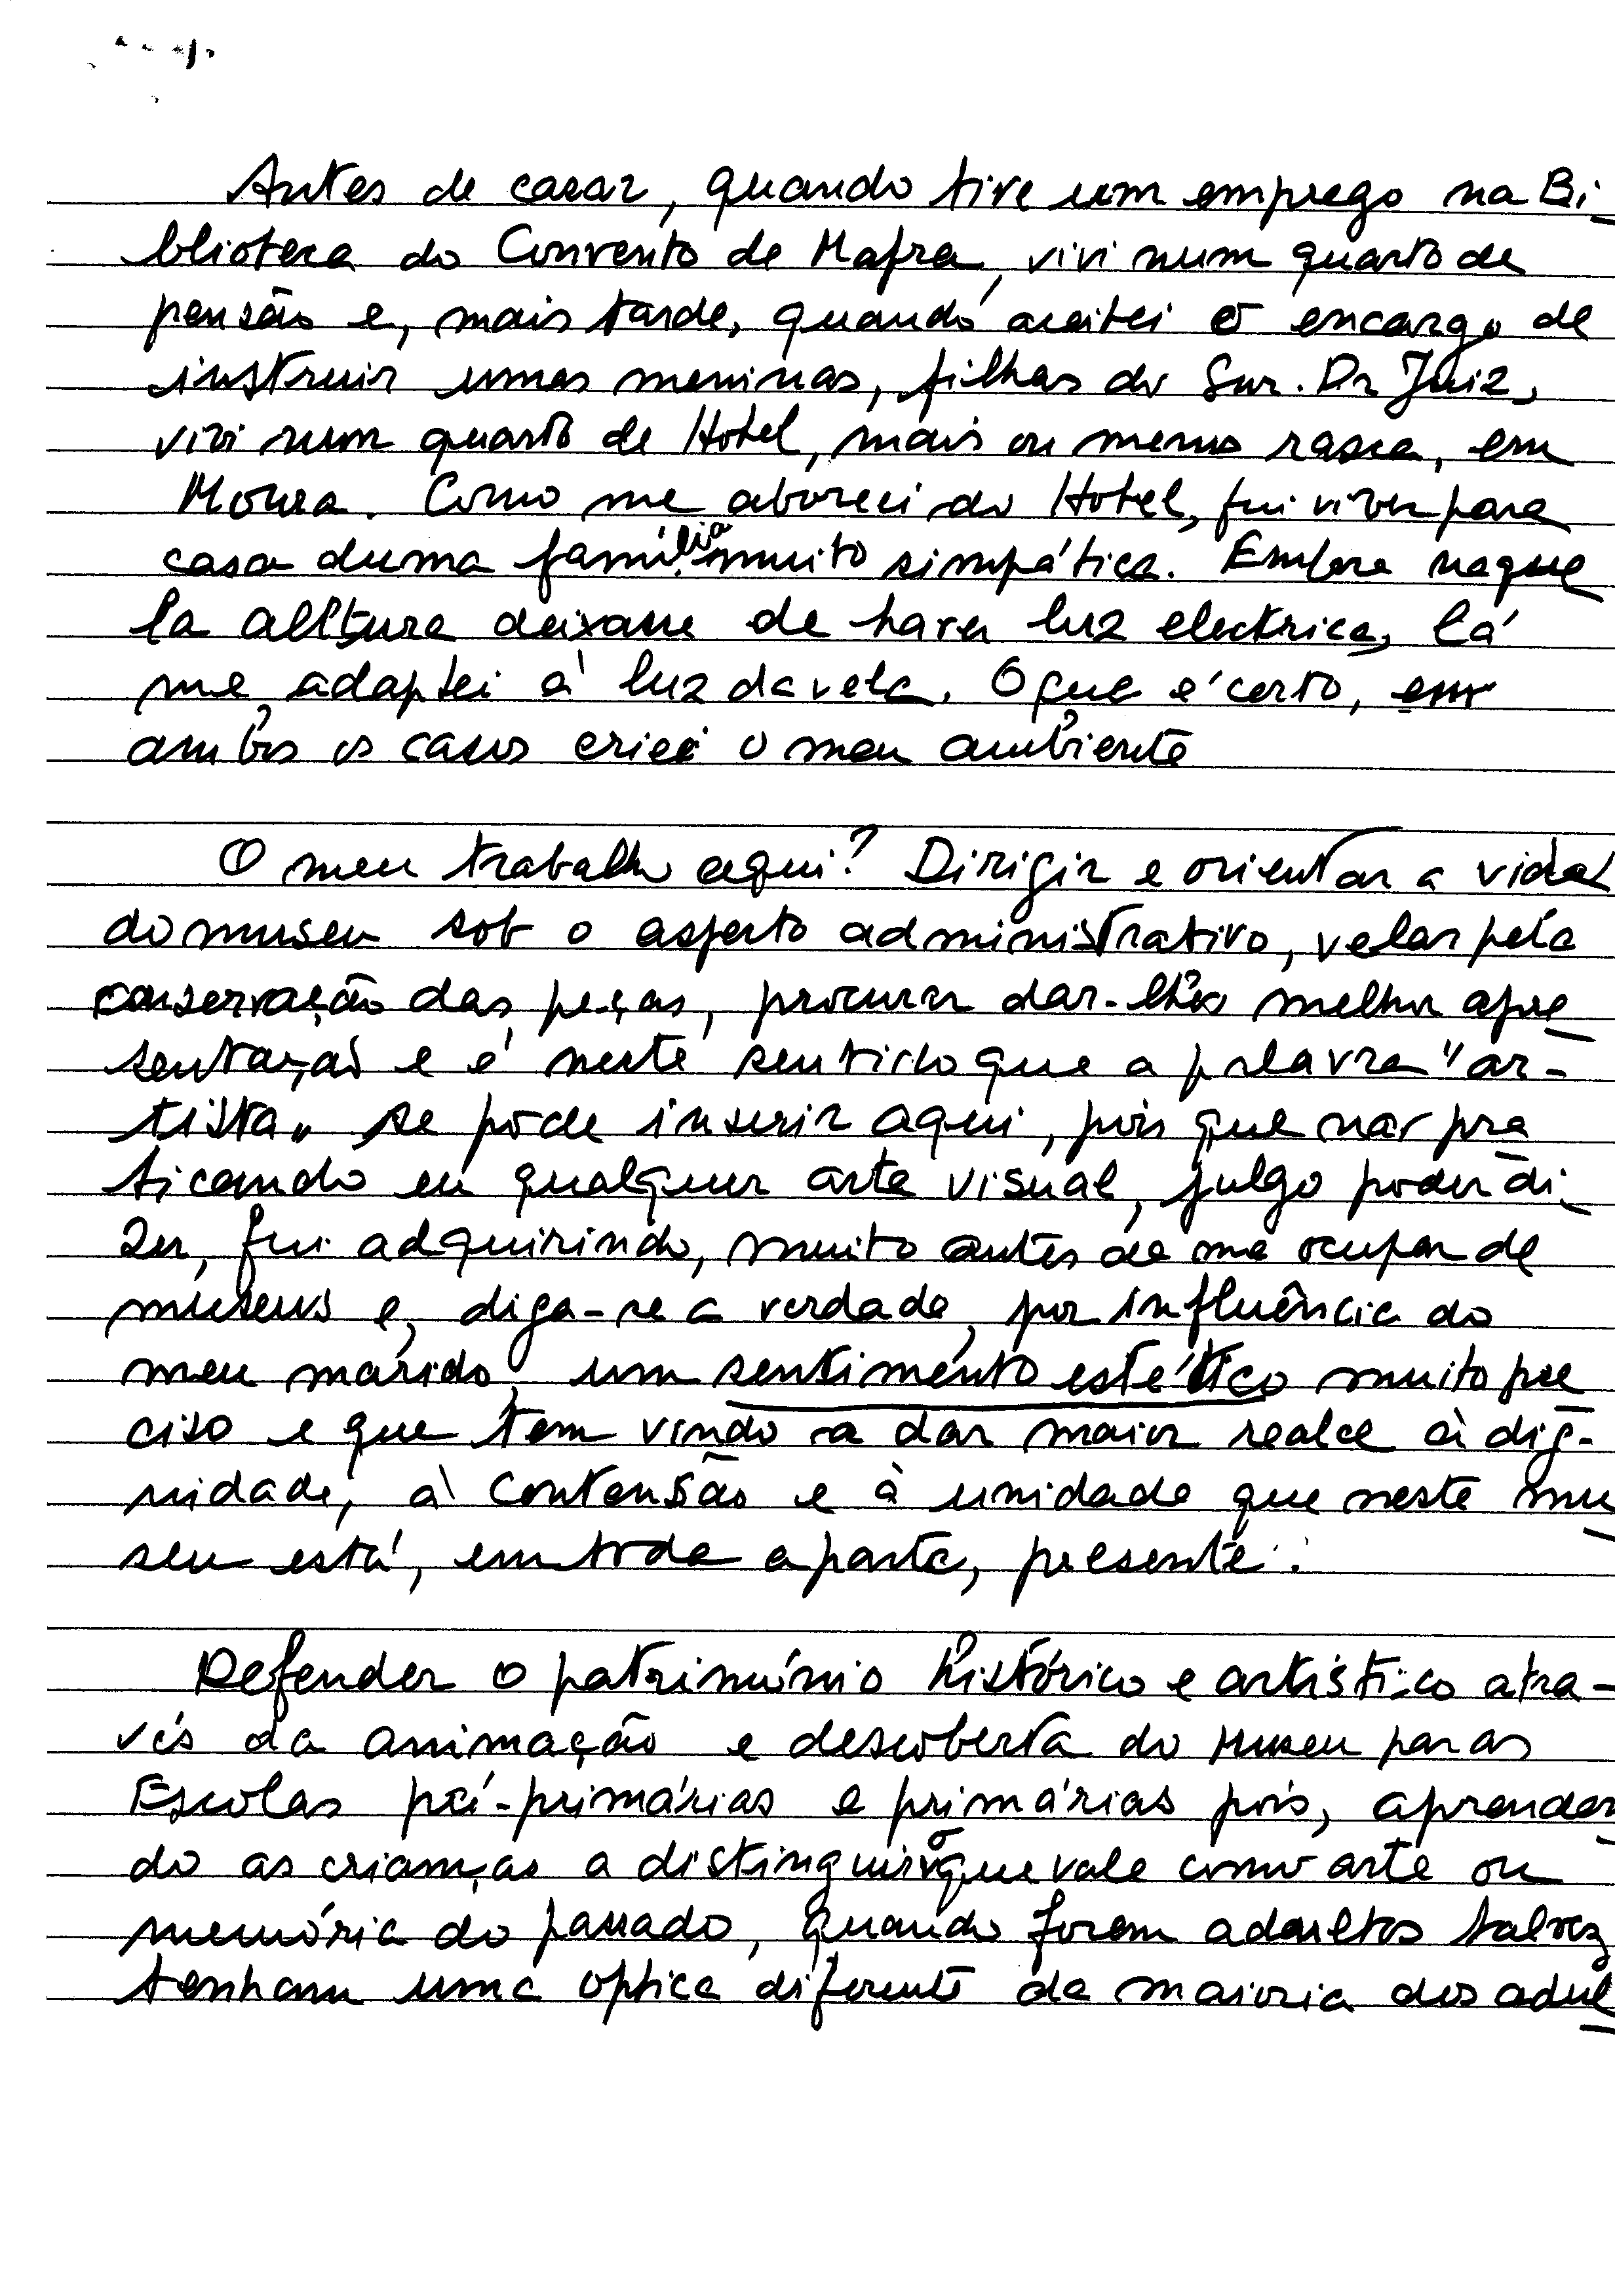 Antes de casar, quando tive um emprego na Bi-
blioteca do Convento de Mafra, vivi num quarto de
pensão e, mais tarde, quando aceitei o encargo de
instruir umas meninas, filhas do Snr. Dr Juiz,
vivi num quarto de Hotel, mais ou menos rasca, em
Moura. Como me aboreci do Hotel, fui viver para
casa duma família muito simpática. Embora naque
la altura deixasse de haver luz electrica, lá
me adaptei à luz da vela. O que é certo, em
ambos os casos criei o meu ambiente
O meu trabalho aqui? Dirigir e orientar a vida
do museu sob o aspecto administrativo, velar pela
conservação das peças, procurar dar-lhes melhor apre
sentação e é neste sentido que a palavra "ar-
tista" se pode inserir aqui, pois que não pra
ticando eu qualquer arte visual, julgo poder di-
zer, fui adquirindo, muito antes de me ocupar de
museus e, diga-se a verdade, por influência do
meu marido, um sentimento estético muito pre
ciso e que tem vindo a dar maior realce à dig-
nidade, à contensão e à unidade que neste mu
seu está, em toda a parte, presente.
Defender o património histórico e artístico atra-
vés da animação e descoberta do Museu para as
Escolas pré-primárias e primárias pois, aprenden
do as crianças a distinguir o que vale como arte ou
memória do passado, quando forem adultos talvez
tenham uma optica diferente da maioria dos adul